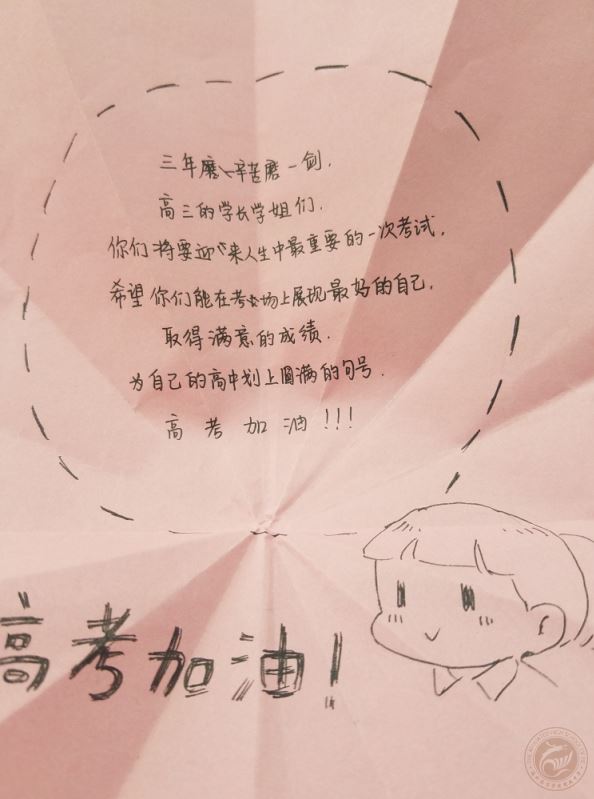 三年磨辛苦磨一剑,
高三的学长学姐们.
你们将要迎来人生中最重要的一次考试,
希望你们能在考场上展现最好的自己,
取得满意的成绩.
为自己的高中划上圆满的句号.
高考加油!!!
高考加油!